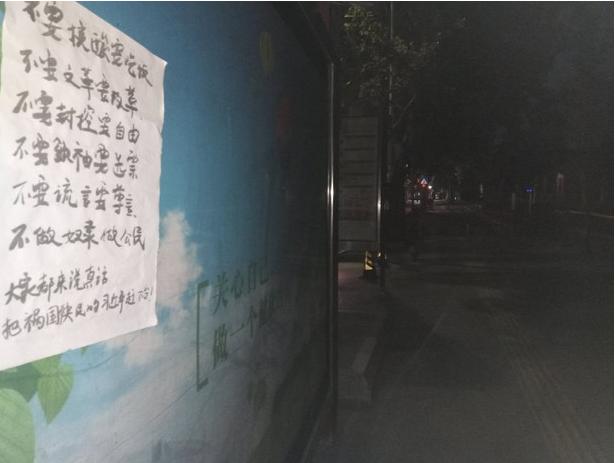 不要核酸要吃饭
不要文革要改革
不要封控要自由
不要领袖要选票
不要谎言要尊言
不做奴 做公民
大家都来说真话
把祸国殃民的习近平赶下台!
关心自己
做一个